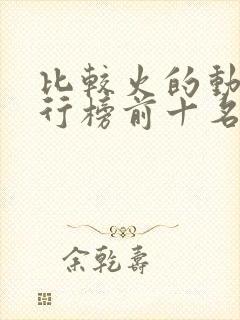 比較火的動
行榜前十名
余乾壽